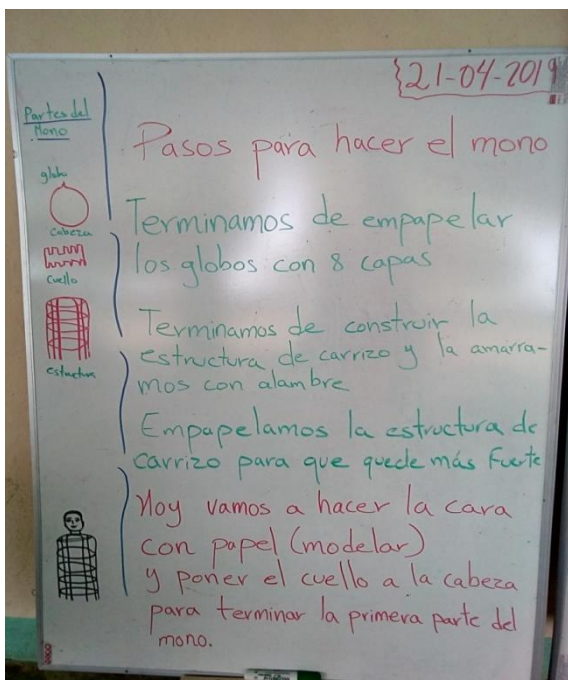 21-04-2019
Partes del
Mono
globo
Cabeza
Cuello
estructura
Pasos para hacer el mono
Terminamos de empapelar
los globos con 8 capas
Terminamos de construir la
estructura de carrizo y la amarra-
mos con alambre
Empapelamos la estructura de
carrizo para que quede más fuerte
Hoy vamos a hacer la cara
con papel (modelar)
y poner el cuello a la cabeza
para terminar la primera parte del
mono.